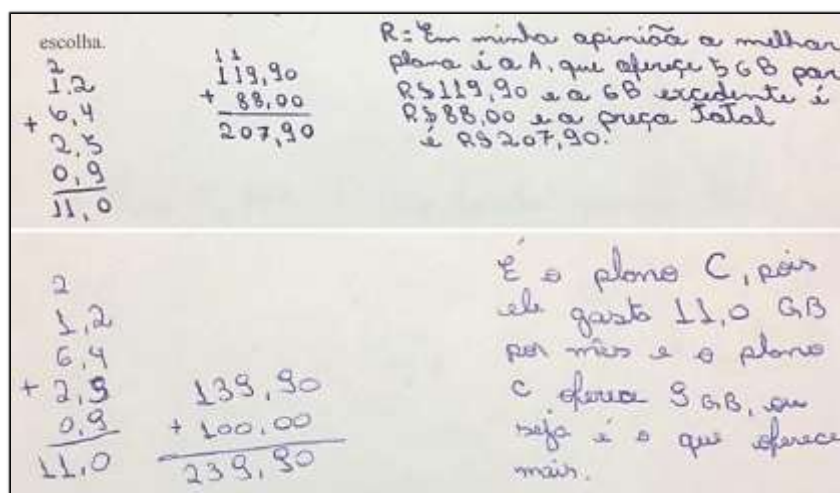 escolha.
2
1,2
+ 6,4
2,5
0,9
11,0
11
119,90
+ 88,00
207,90
R: Em minha opinião a melhor
plano é o A, que oferece 5 GB por
R$119,90 e o GB excedente é
R$88,00 e o preço Total
é R$207,90.
2
1,2
6,4
+ 2,5
0,9
11,0
139,90
+ 100,00
239,90
É o plano C, pois
ele gasta 11,0 GB
por mês e o plano
C oferece 9 GB, ou
seja é o que oferece
mais.